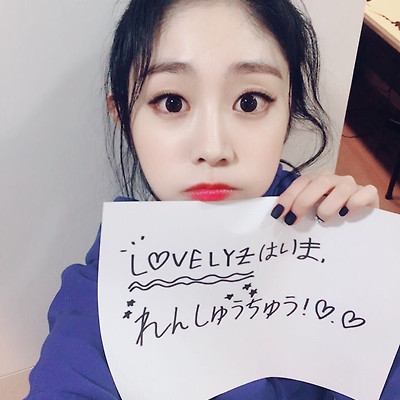 L♡VELYZはいま、
れんしゅうちゅう!♡.♡